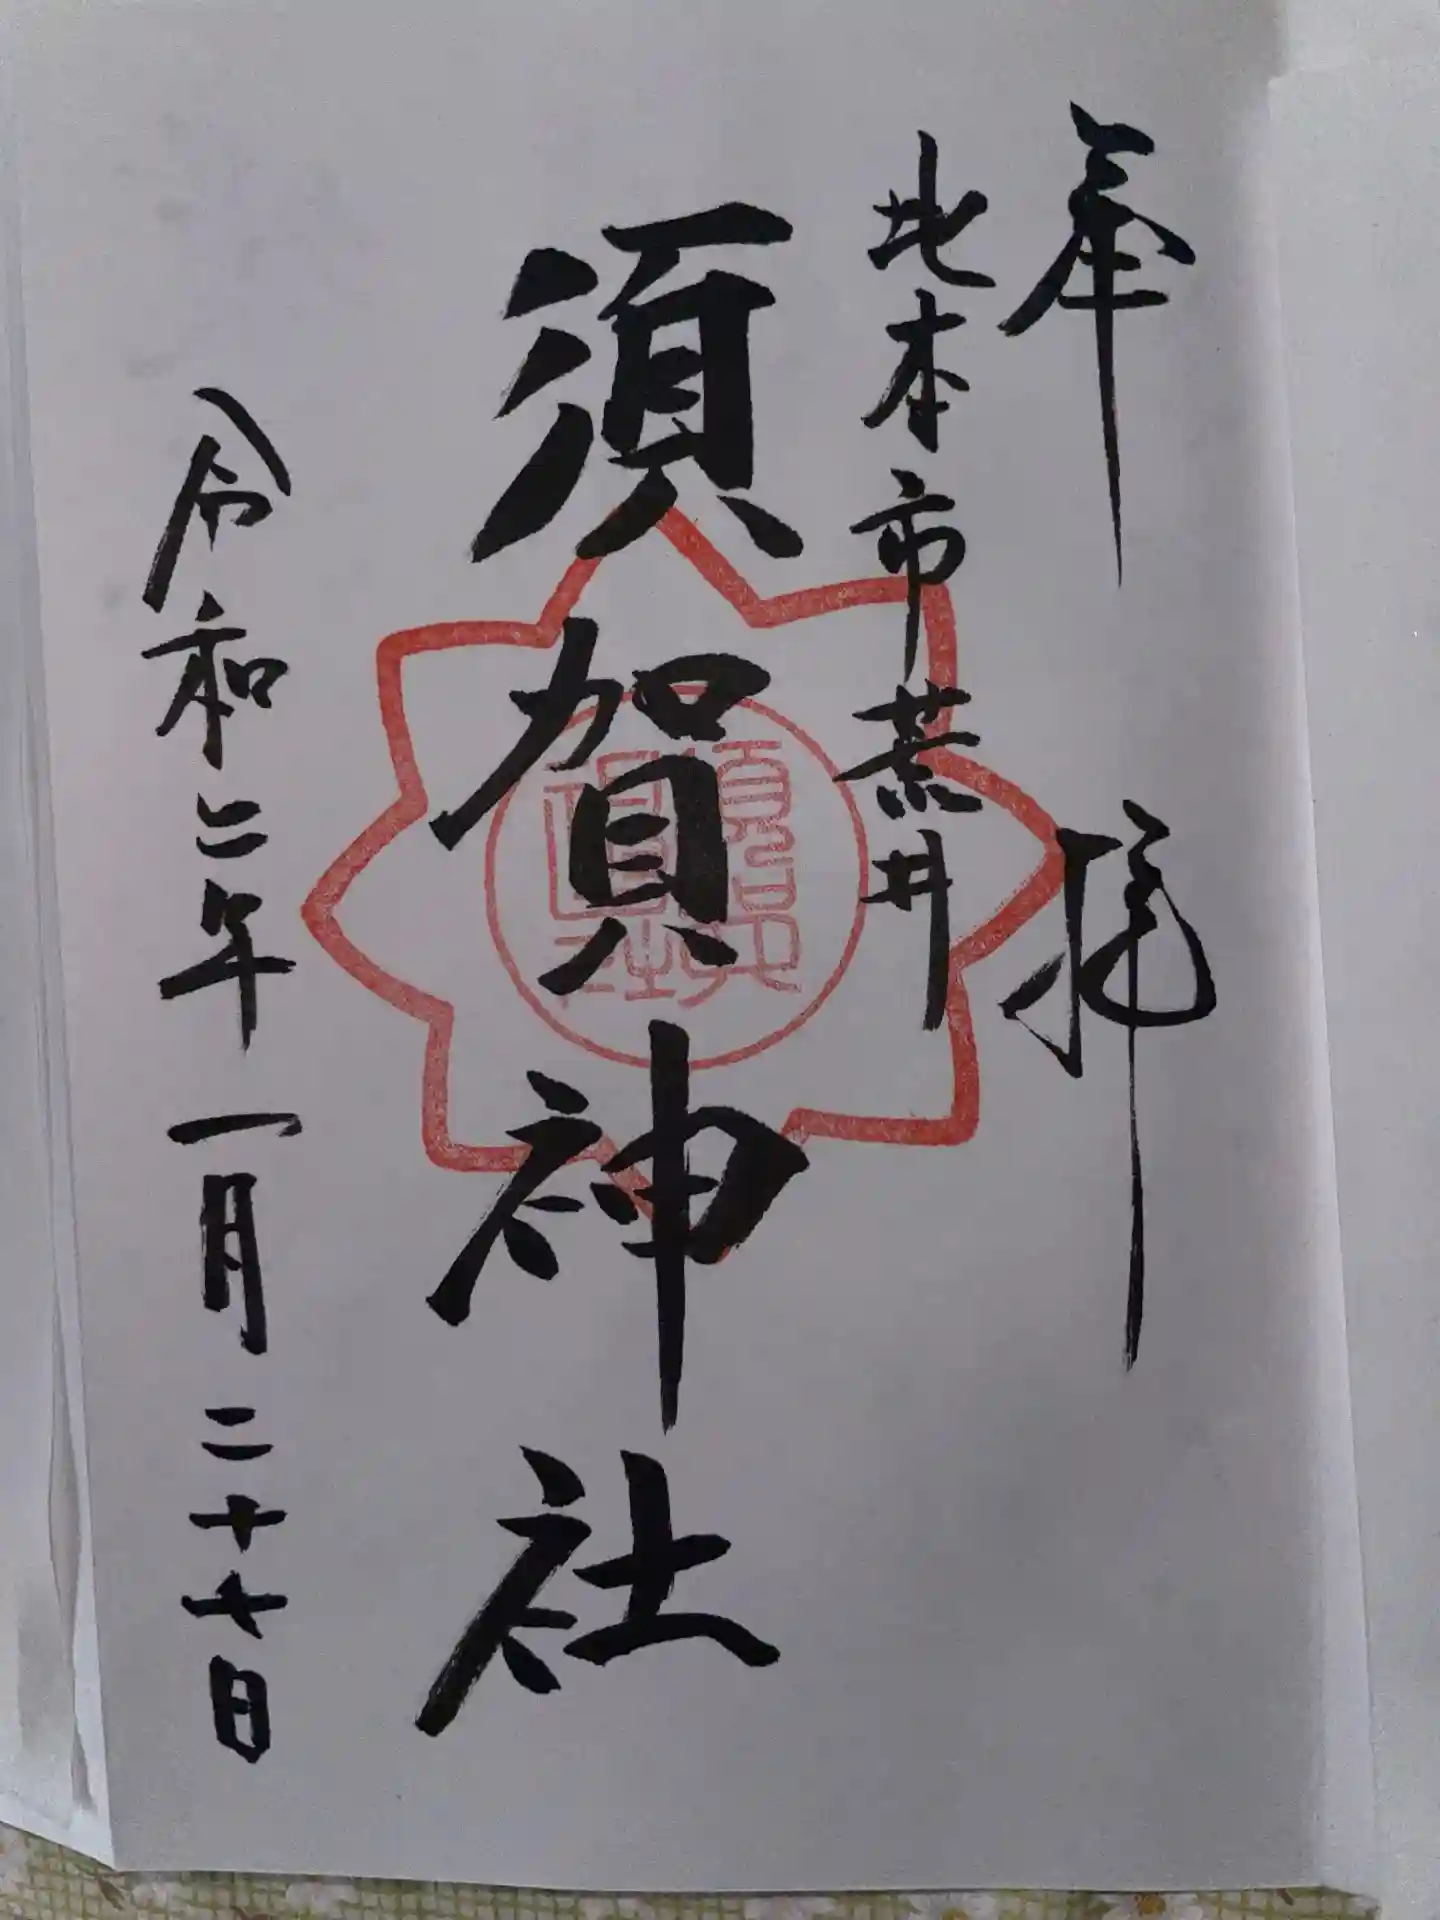 奉拝
北本市荒井
須賀神社
令和二年一月二十七日